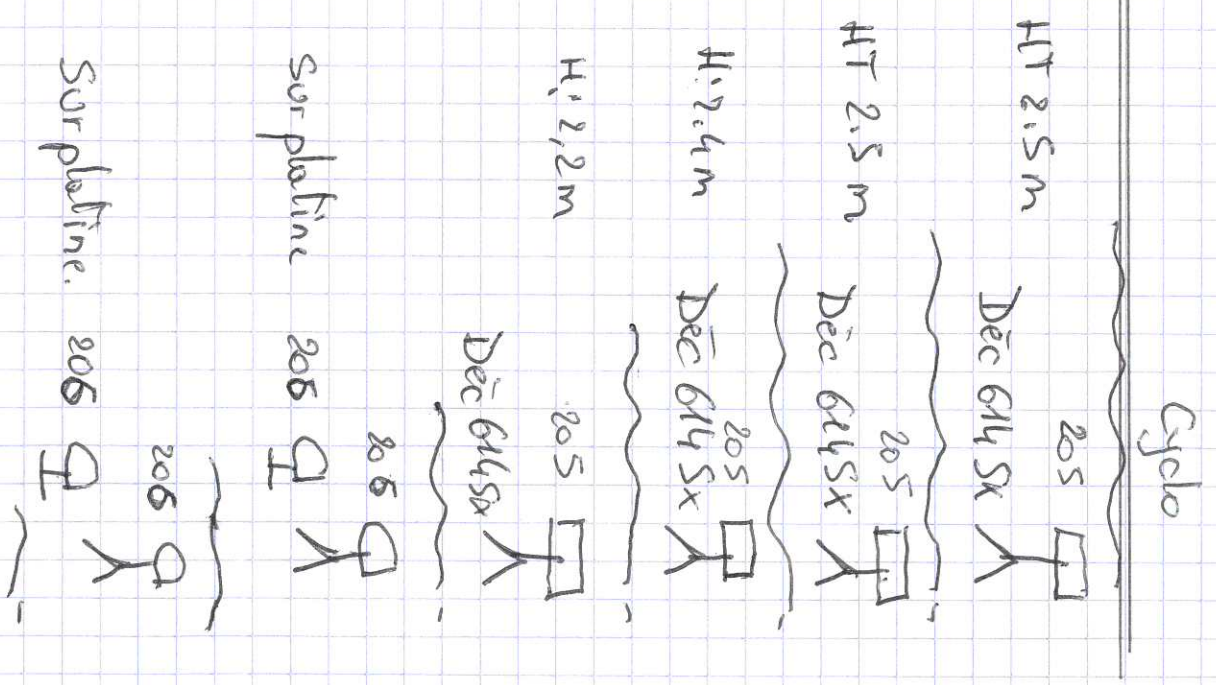 Cyclo
205
HT 2.5m
Déc 614 Sx
205
HT 2.5 m
Déc 614 Sx
205
H:2.4m
Déc 614 Sx
205
H:2,2m
Déc 614Sx
206
Sur platine 206
206
Sur platine. 206